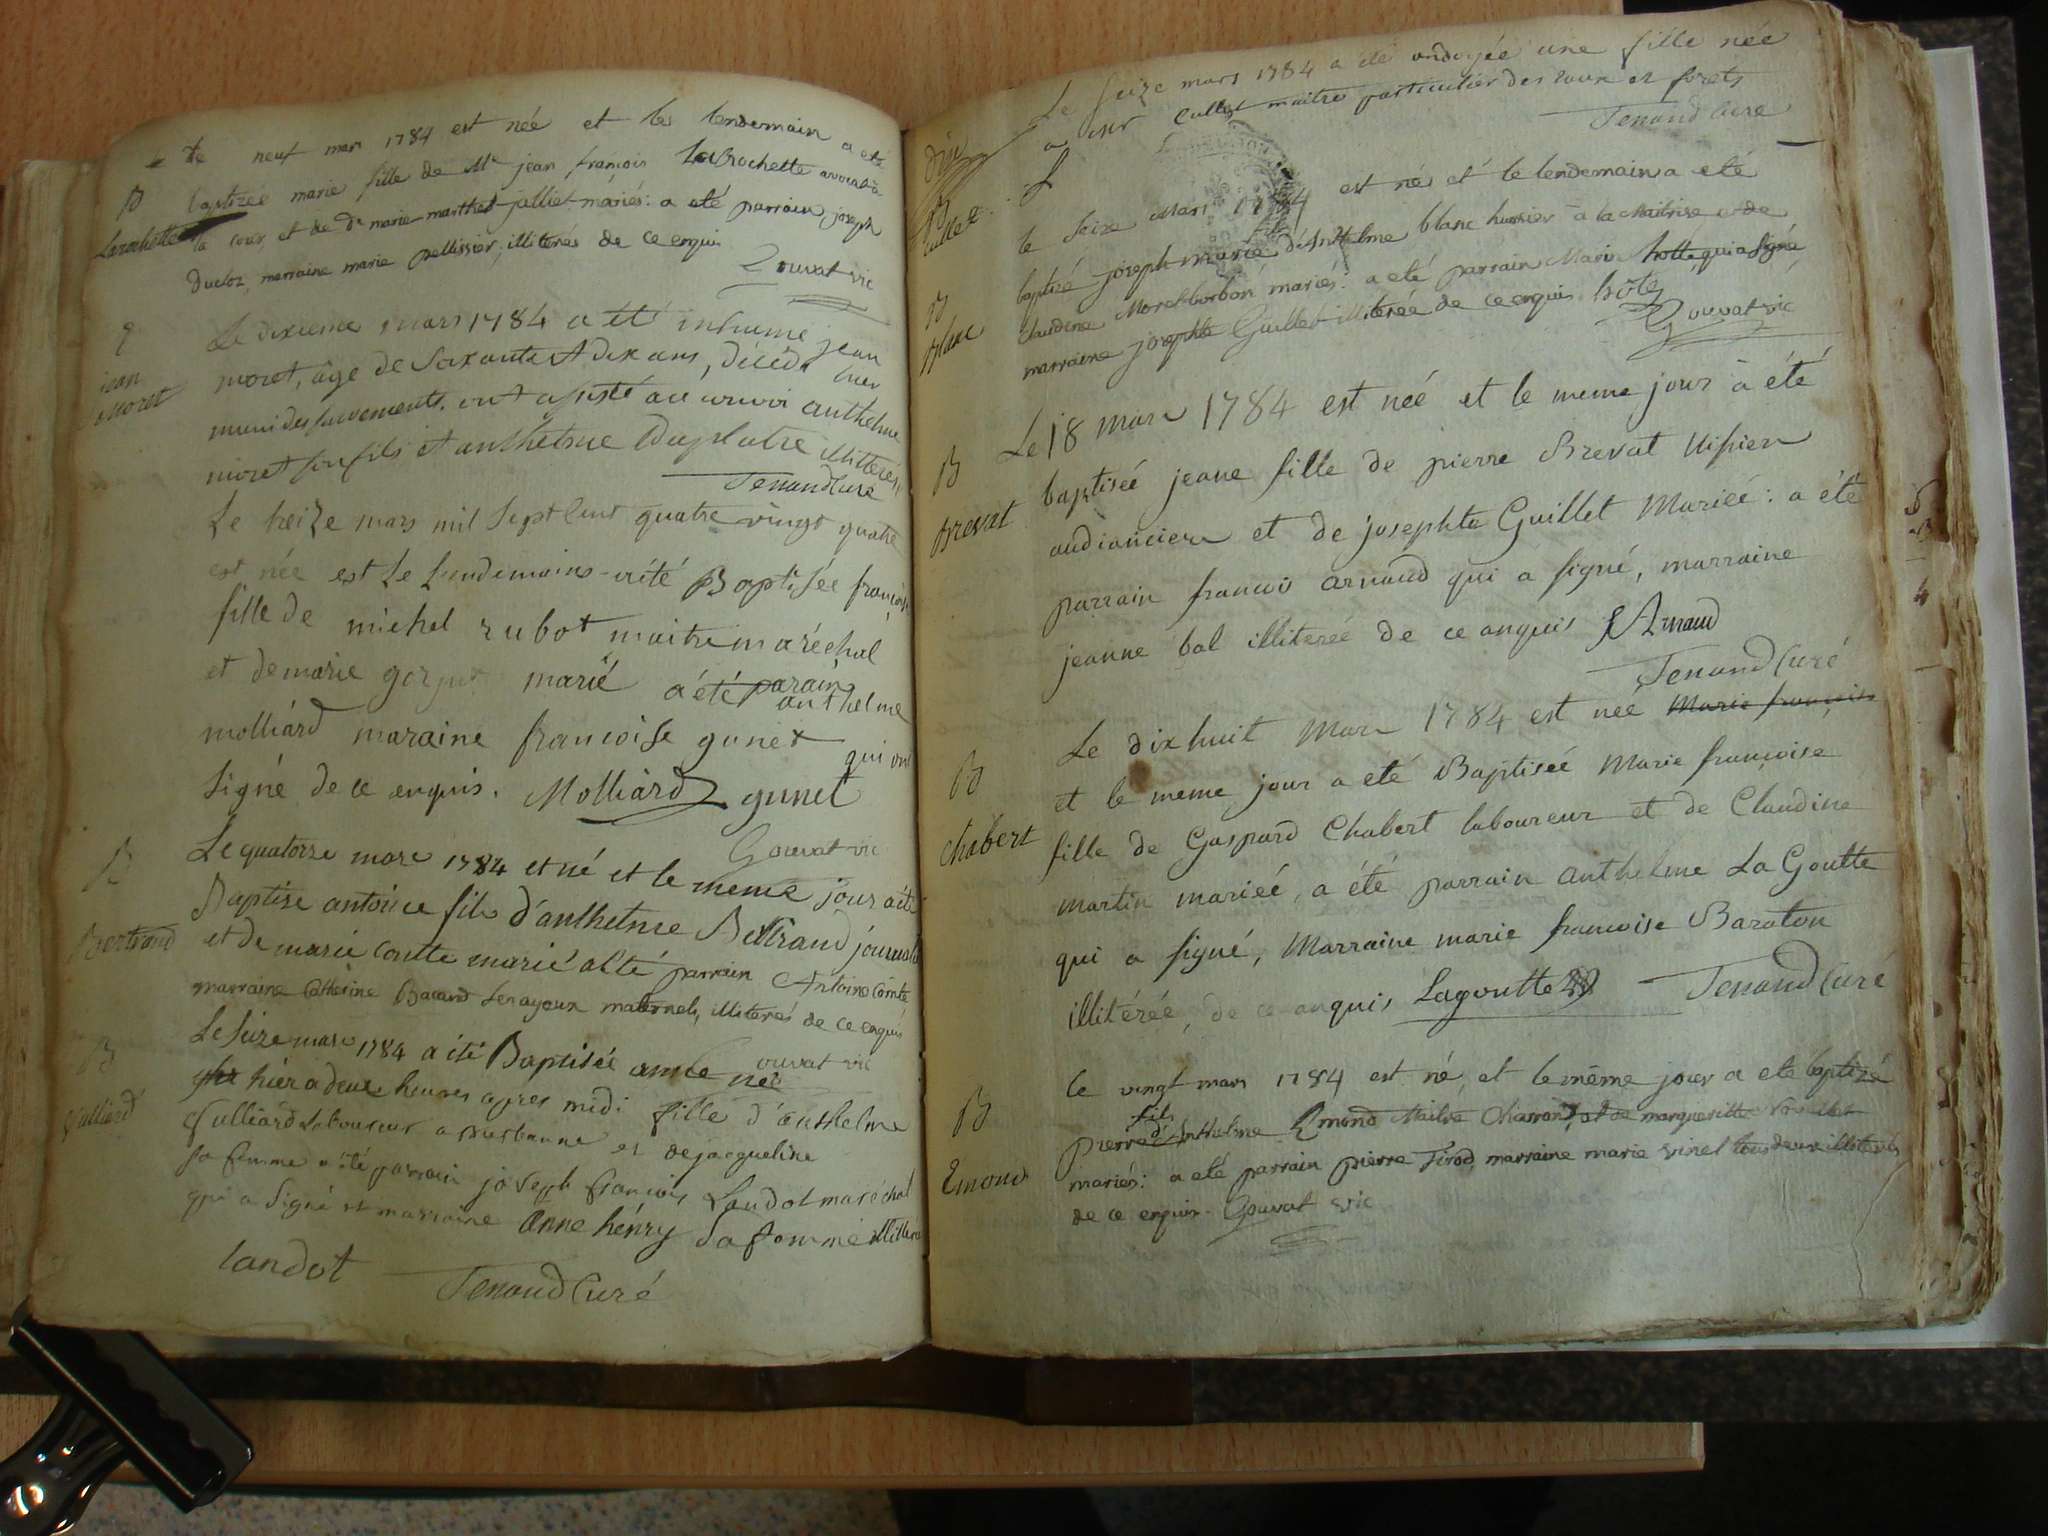 Le neuf mars 1784 est née et le lendemain a eté
B baptizée marie fille de Mr jean françois Larochette avocat à
Larochette la cour, et de De marie marthe jalliet mariés: a eté parrain joseph
ducloz, marraine marie pellissier, illiterés de ce enquis
Gouvat vic
Le dixieme mars 1784 a été inhumé jean
jean moret, âge de soixante et dix ans, décédé hier
Moret muni des sacrements. ont assisté au convoi anthelme
moret son fils et anthelme Duplatre illiterés
Tenand Curé
Le treize mars mil sept Cent quatre vingt quatre
est née est Le Lendemains eité Baptisée françoise
fille de michel rubot maitre maréchal
et de marie marié a été parain
anthelme
molliard maraine francoise gunet qui ont
signé de ce enquis. Molliard gunet
Gouvat vic
B Le quatorze mars 1784 et né et le meme jour a été
Baptise antoine fils d'anthelme Bertrand journalier
Bertrand et de marie Comte marié a été parrain Antoine Comte
marraine Catherine Bacand les ayeux maternels, illiterés de ce enquis
ouvat vic
B Le seize mars 1784 a été Baptisée anne née
hier a deux heures apres midi fille d'anthelme
Vulliard Vulliard Laboureur a et de jacqueline
sa femme a été parrain joseph françois Landot maréchal
qui a signé et marraine anne hénry sa femme illiterée
landot Tenand Curé
Le seize mars 1784 a été ondoyée une fille née
a mr Cullet maitre particulier des eaux et forets
Cullet Tenand Curé
le seize Mars 1784 est né et le lendemain a eté
B baptisé joseph marie d'Anthelme blanc huissier à la Maitrise et de
blanc claudine Morel-borbon mariés: a eté parrain Marin hotte qui a signé
marraine josephte Guillet illiterée de ce enquis hôte
Gouvat vic
Le 18 mars 1784 est née et le meme jour à été
B baptisée jeane fille de pierre Brevat
Brevat audiancier et de josephte Guillet Mariéé: a été
parrain francois arnaud qui a signé, marraine
jeanne bal illiterée de ce anquis f Arnaud
Tenand Curé
Le dix huit Mars 1784 est née Marie françoise
B et le meme jour a été Baptiséé Marie françoise
Chabert fille de Gaspard Chabert laboureur et de Claudine
martin mariéé, a été parrain anthelme La Goutte
qui a signé, Marraine marie francoise Baraton
illitérée, de ce anquis Lagoutte Tenand Curé
le vingt mars 1784 est né, et le même jour a eté baptizé
fils
B pierre d'Anthelme Emond Maitre Charron, et de margueritte
Emond mariés: a eté parrain pierre Tirod, marraine marie vinet tous deux illiterés
de ce enquis. Gouvat vic